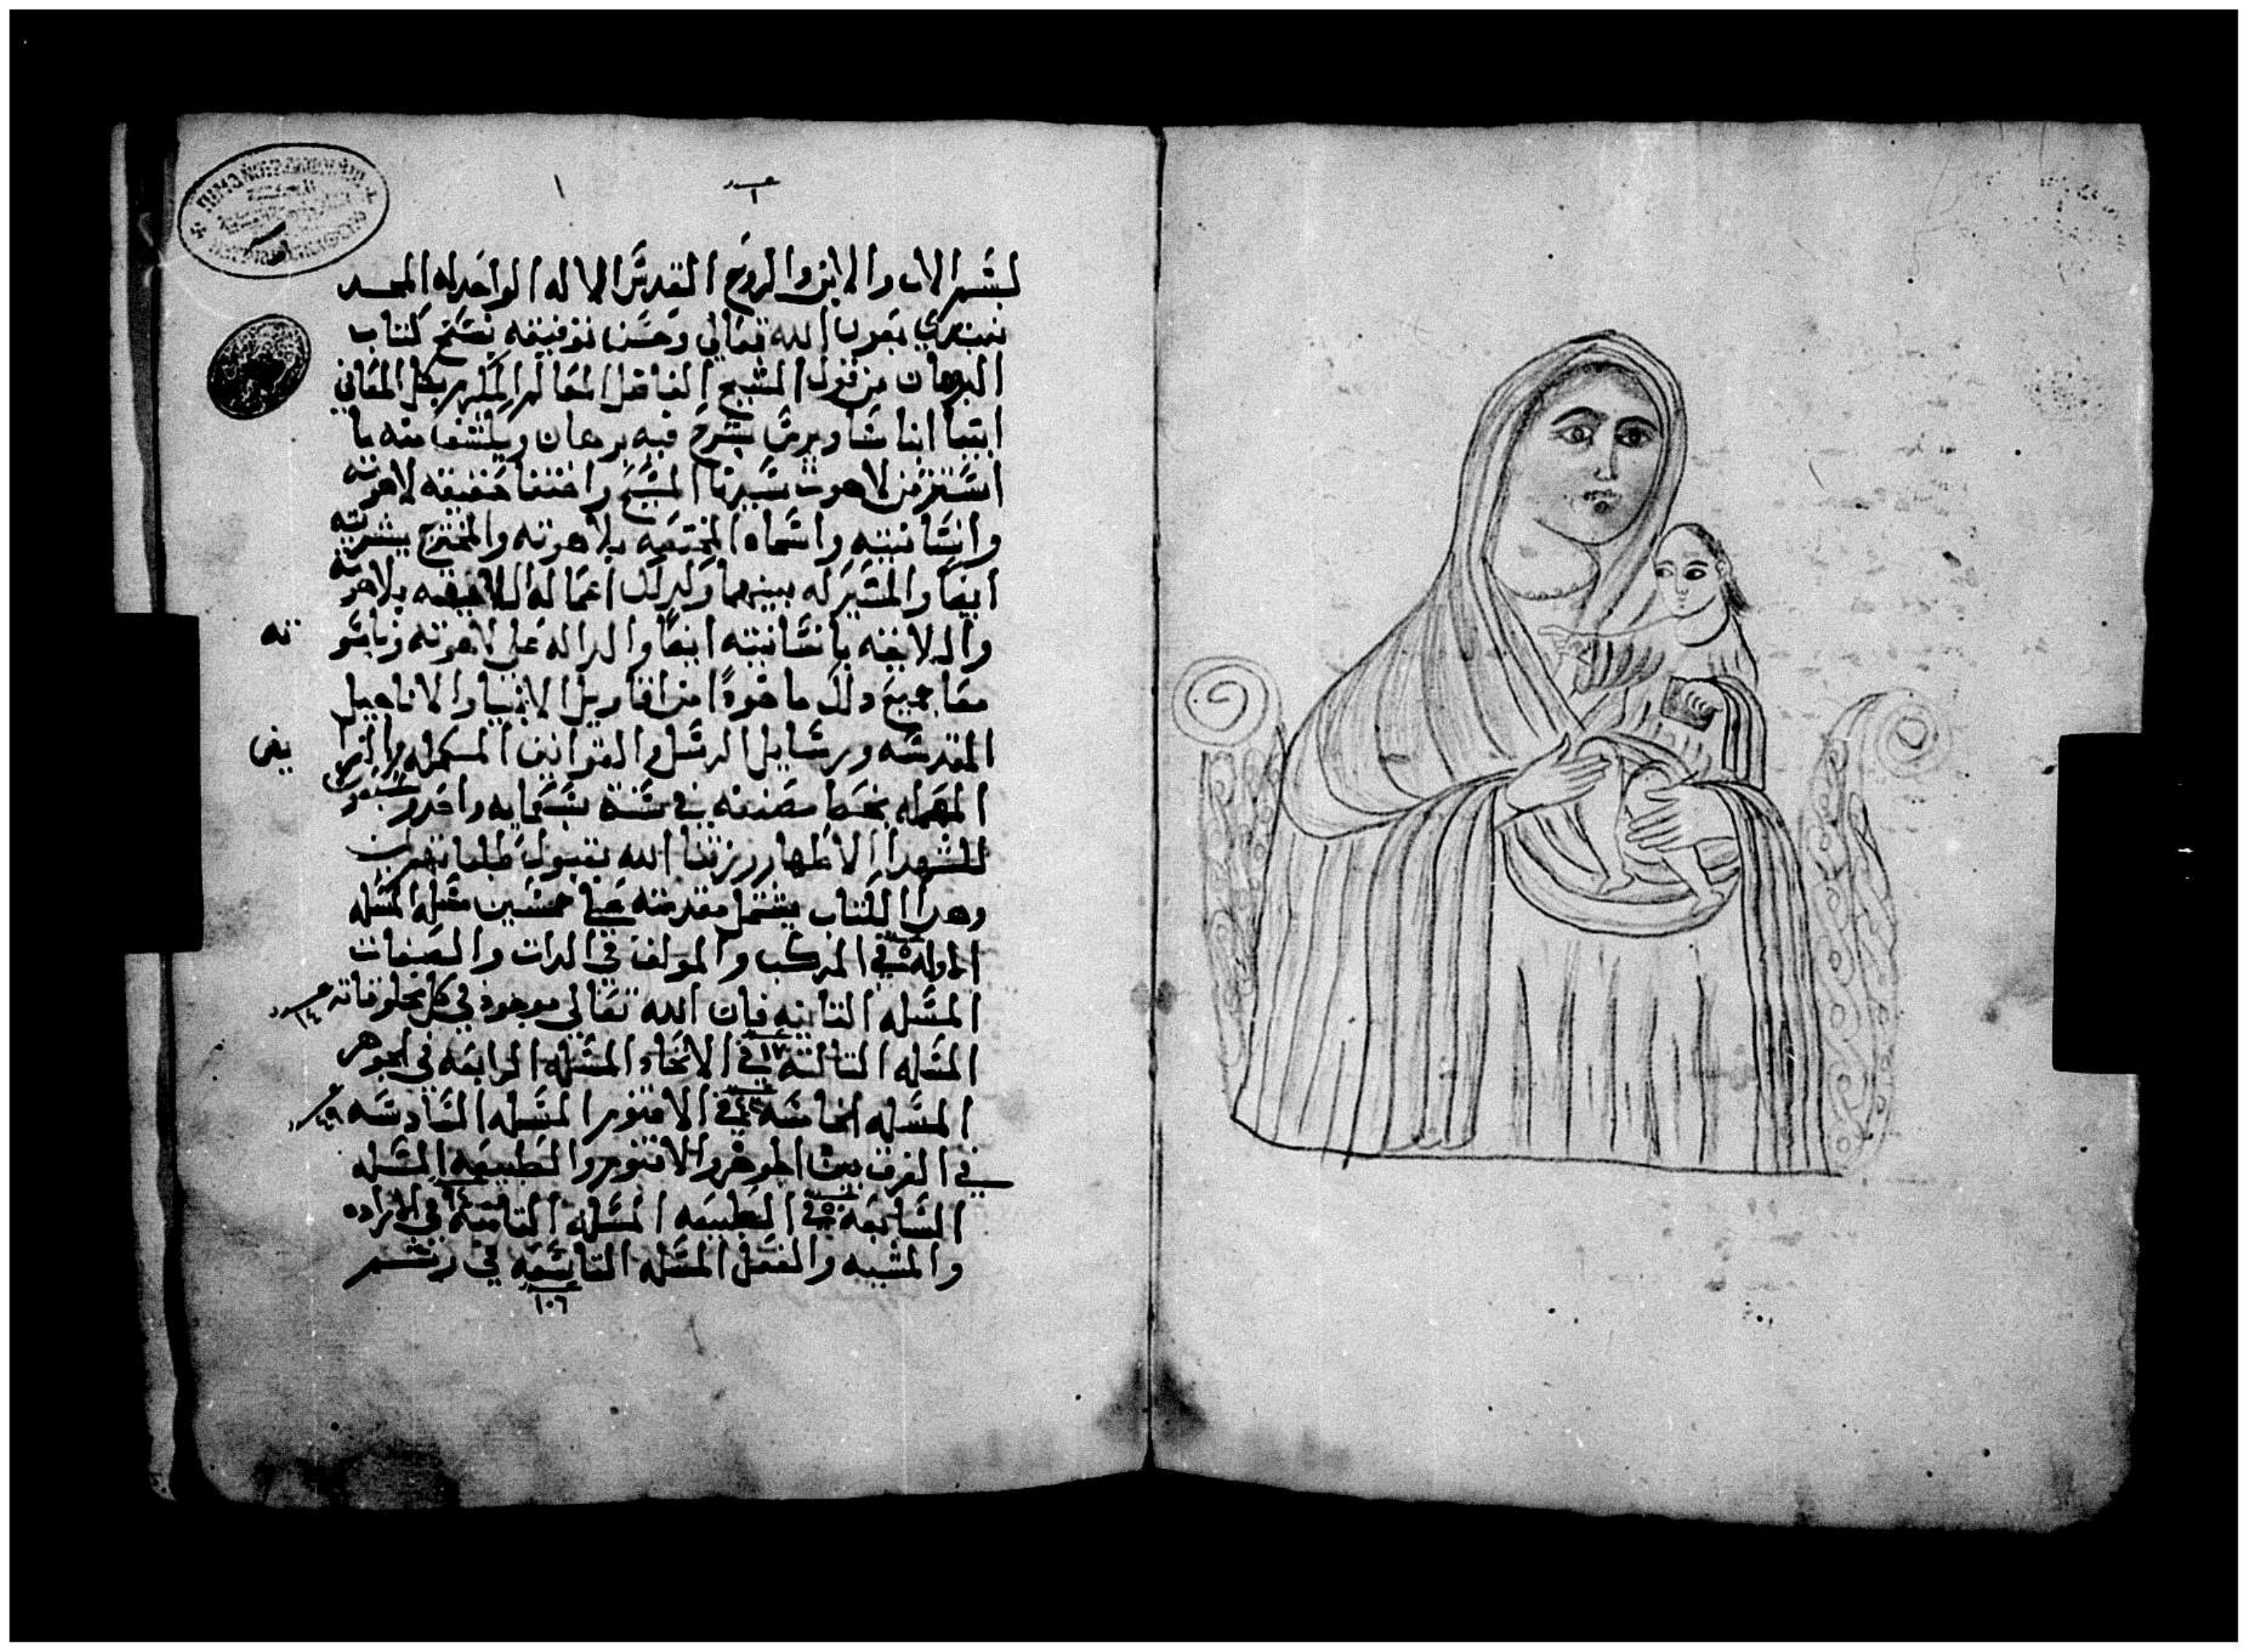 ١
عدد ١
بسم الاب والابن والروح القدس الاله الواحد له المجد
نبتدي بعون الله تعالي وحسن توفيقه بنسخ كتاب
البرهان من قول الشيخ الفاضل العالم المكرم بكل المعاني
ايضا انبا ساويرس يشرح فيه برهان ويكشف منه ما
استتر من لاهوت سيدنا المسيح واختفا حقيقه لاهوته
وانسانيته واسماه المختصه بلاهوته والمختصه ببشريته
ايضا والمشتركه بينهما وكدلك اعماله اللايقه بلاهو
ته
واللايقه بانسانيته ايضا والداله علي لاهوته وناسو
معا جميع دلك ماخودا من اقاويل الانبيا والاناجيل
المقدسه ورسايل الرسل والقوانين
المهمله بخط مصنفه في سنة تسعمايه واحدي
للشهدا الاطهار رزقنا الله بقبول طلباتهم امين
وهدا الكتاب يشتمل مقدمته علي خمسين مسله المسله
الاوله في المركب والمولف في الدات والصفات
المسله التانيه فان الله تعالي موجود في كل مخلوقاته
عدد ١٤
المسله التالته في الاتحاد المسله الرابعه في الجوهر
المسله الخامسه في الاقنوم المسله السادسه
في الفرق بين الجوهر والاقنوم والطبيعه المسله
السابعه في الطبيعه المسله التامنه في الاراده
والمشيه والفعل المسله التاسعه في
١٠٦